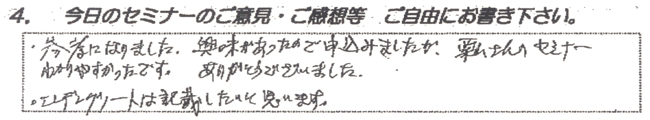 4. 今日のセミナーのご意見・ご感想等 ご自由にお書き下さい。
・参考になりました。興味があったので申込みましたが、栗山さんのセミナー
わかりやすかったです。 ありがとうございました。
・エンディングノートは記載したいと思います。